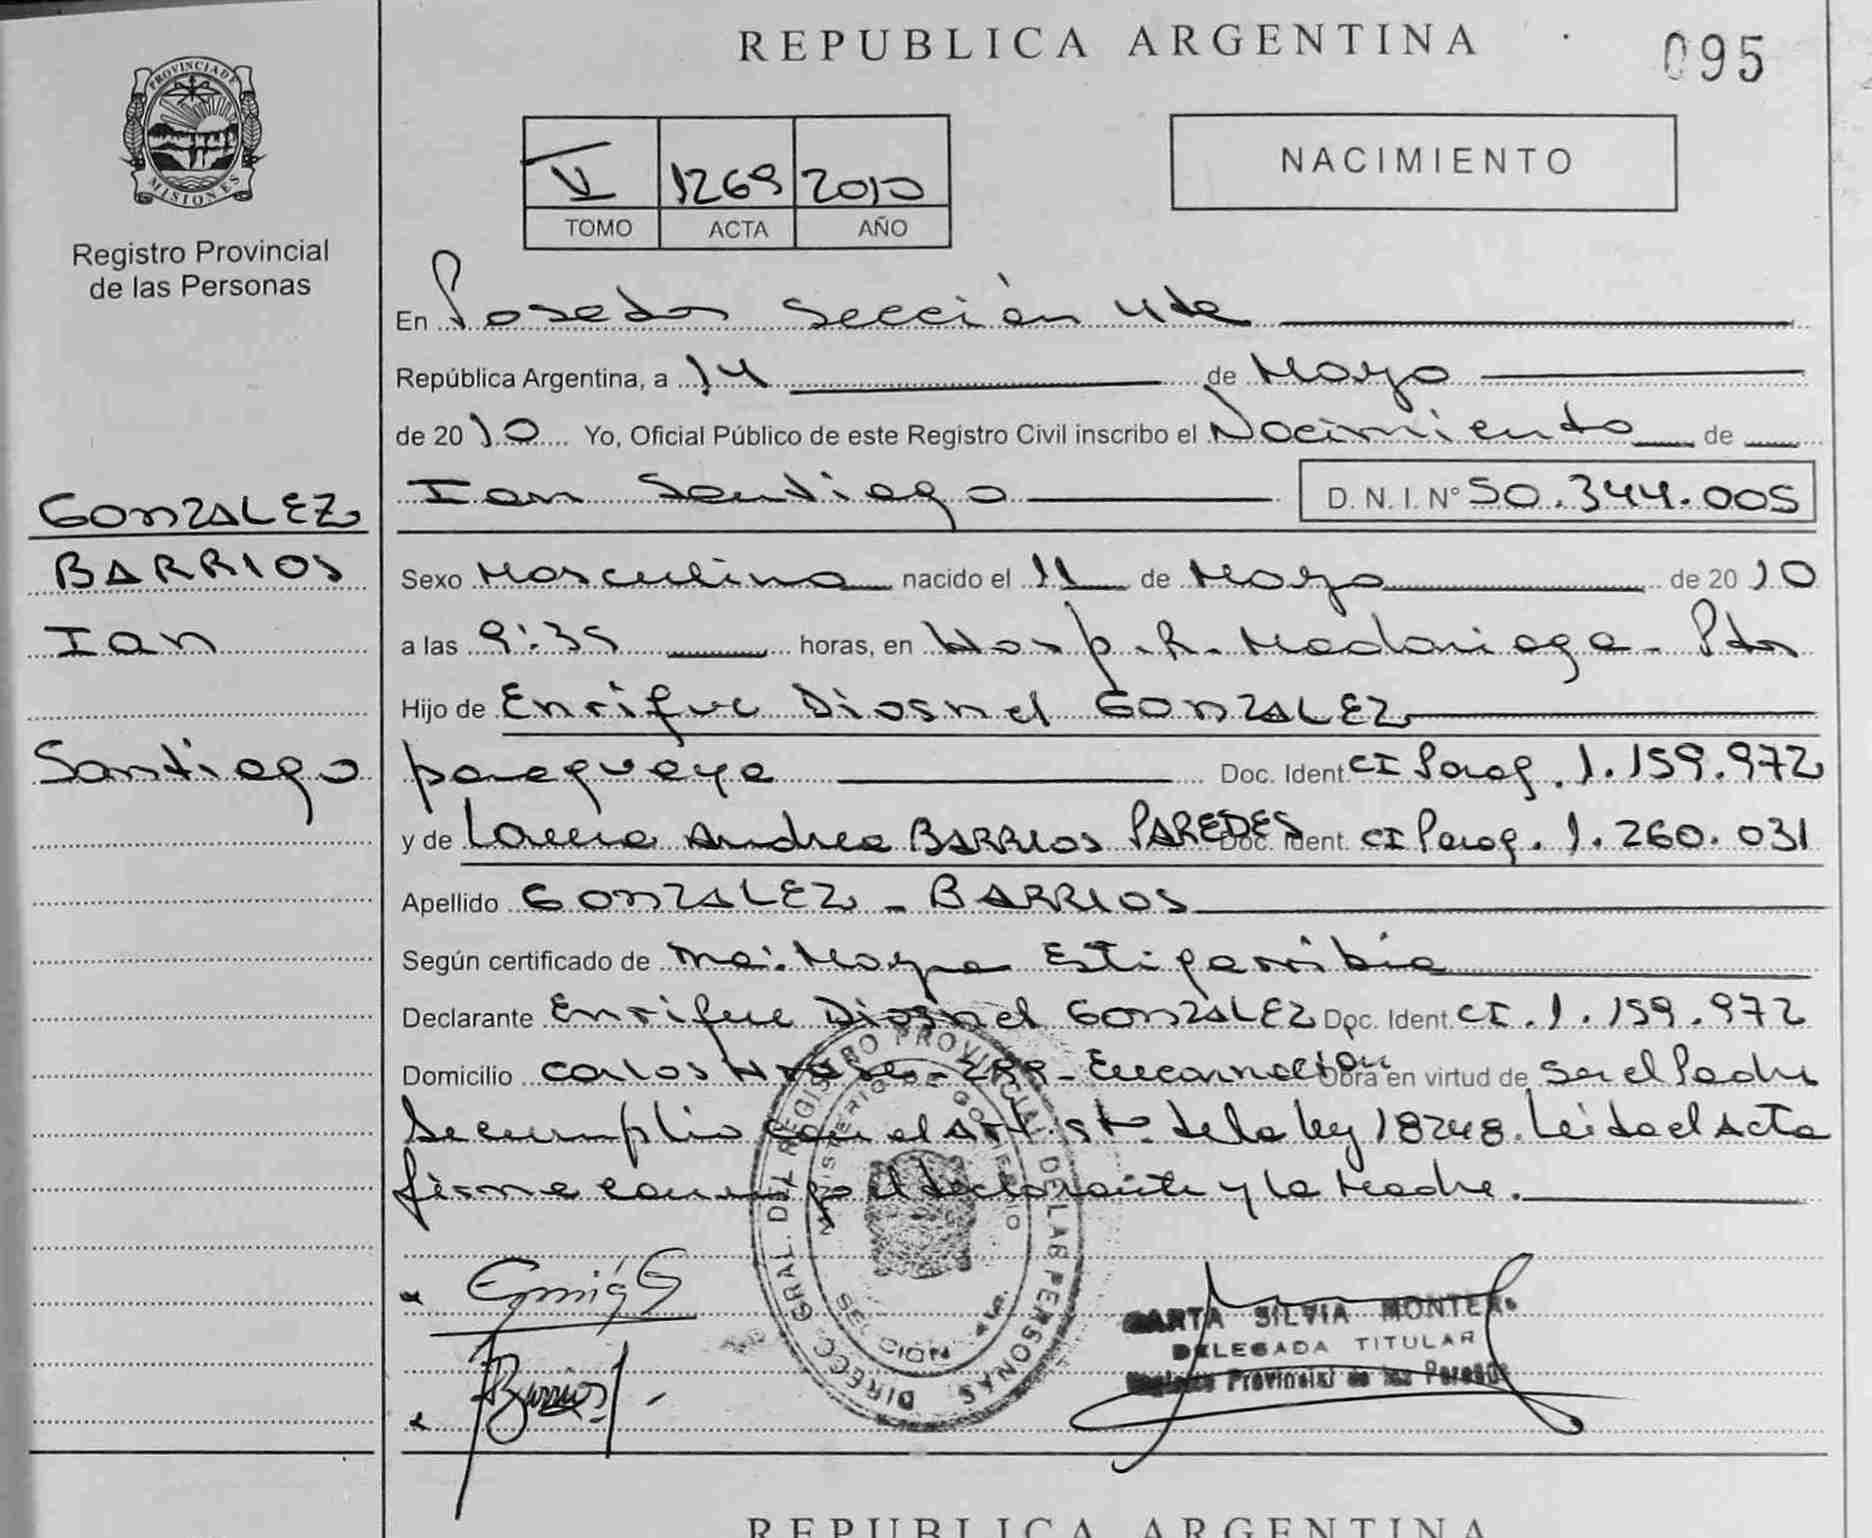 REPUBLICA ARGENTINA
095
PROVINCIA DE MISIONES
Registro Provincial
de las Personas
V 1269 2010
TOMO ACTA AÑO
NACIMIENTO
En Posadas Sección 4ta
República Argentina, a 14 de Mayo
de 2010 Yo, Oficial Público de este Registro Civil inscribo el Nacimiento de
Ian Santiago D. N. I. Nº 50.344.005
GONZALEZ
BARRIOS
Ian
Santiago
Sexo Masculino nacido el 11 de Mayo de 2010
a las 9:35 horas, en Hosp. R. Madariaga - Pdas
Hijo de Enrique Diosnel GONZALEZ
paraguaya Doc. Ident CI Parag. 1.159.972
y de Laura Andrea BARRIOS PAREDES Doc. Ident. CI Parag. 1.260.031
Apellido GONZALEZ - BARRIOS
Según certificado de Ma. Mayra Estigarribia
Declarante Enrique Diosnel GONZALEZ Doc. Ident. CI. 1.159.972
Domicilio Carlos - Encarnación Obra en virtud de ser el Padre
Se cumplio con el Art 1st. de la ley 18248. Leida el Acta
firma conmigo el declarante y la Madre.
DIRECC. GRAL. DEL REGISTRO PROVINCIAL DE LAS PERSONAS
MINISTERIO DE GOBIERNO
Barrios
SILVIA MONTE
DELEGADA TITULAR
Registro Provincial de las Personas
REPUBLICA ARGENTINA